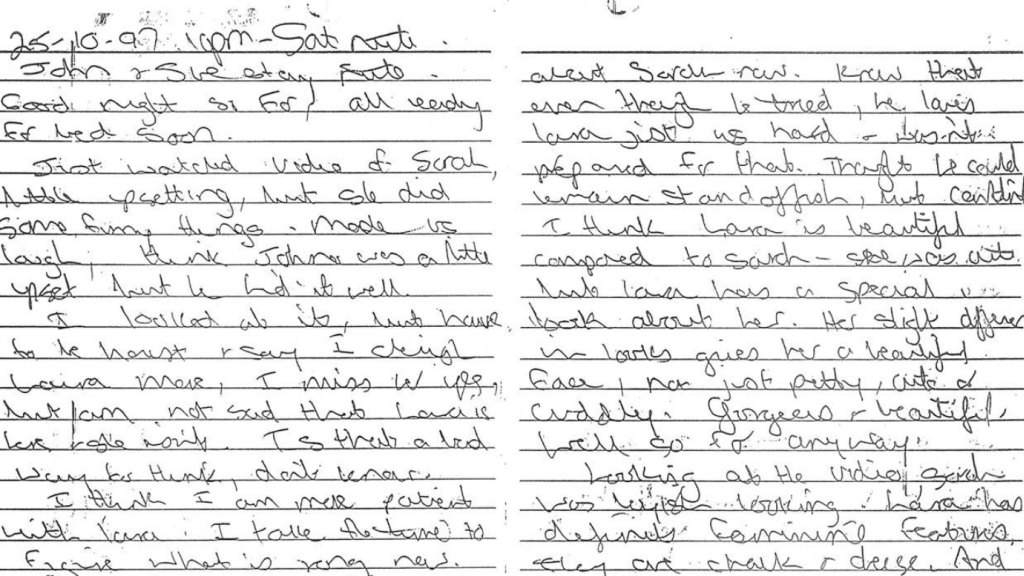 25-10-97 10pm - Sat nite.
John & Sue stay nite.
Good night so far, all ready
for bed soon.
Just watched video of Sarah,
little upsetting, but she did
some funny things. Made us
laugh, think John was a little
upset but he hid it well.
I looked at it, but have
to be honest & say I cherish
Laura more, I miss her yes,
but am not sad that Laura is
here & she isn't. Is that a bad
way to think, don't know.
I think I am more patient
with Laura. I take the time to
figure what is rong now.
about Sarah now. Know that
even though he tried, he loves
Laura just as hard - wasn't
prepared for that. Thought he could
remain standoffish, but couldn't
I think Laura is beautiful
compared to Sarah - she was cute.
but Laura has a special
look about her. Her slight difference
in looks gives her a beautiful
Face, not just pretty, cute or
cuddly. Gorgeous & beautiful,
well so far anyway.
Looking at the video Sarah
was boyish looking. Laura has
definite Feminine Features,
they are chalk & cheese. And